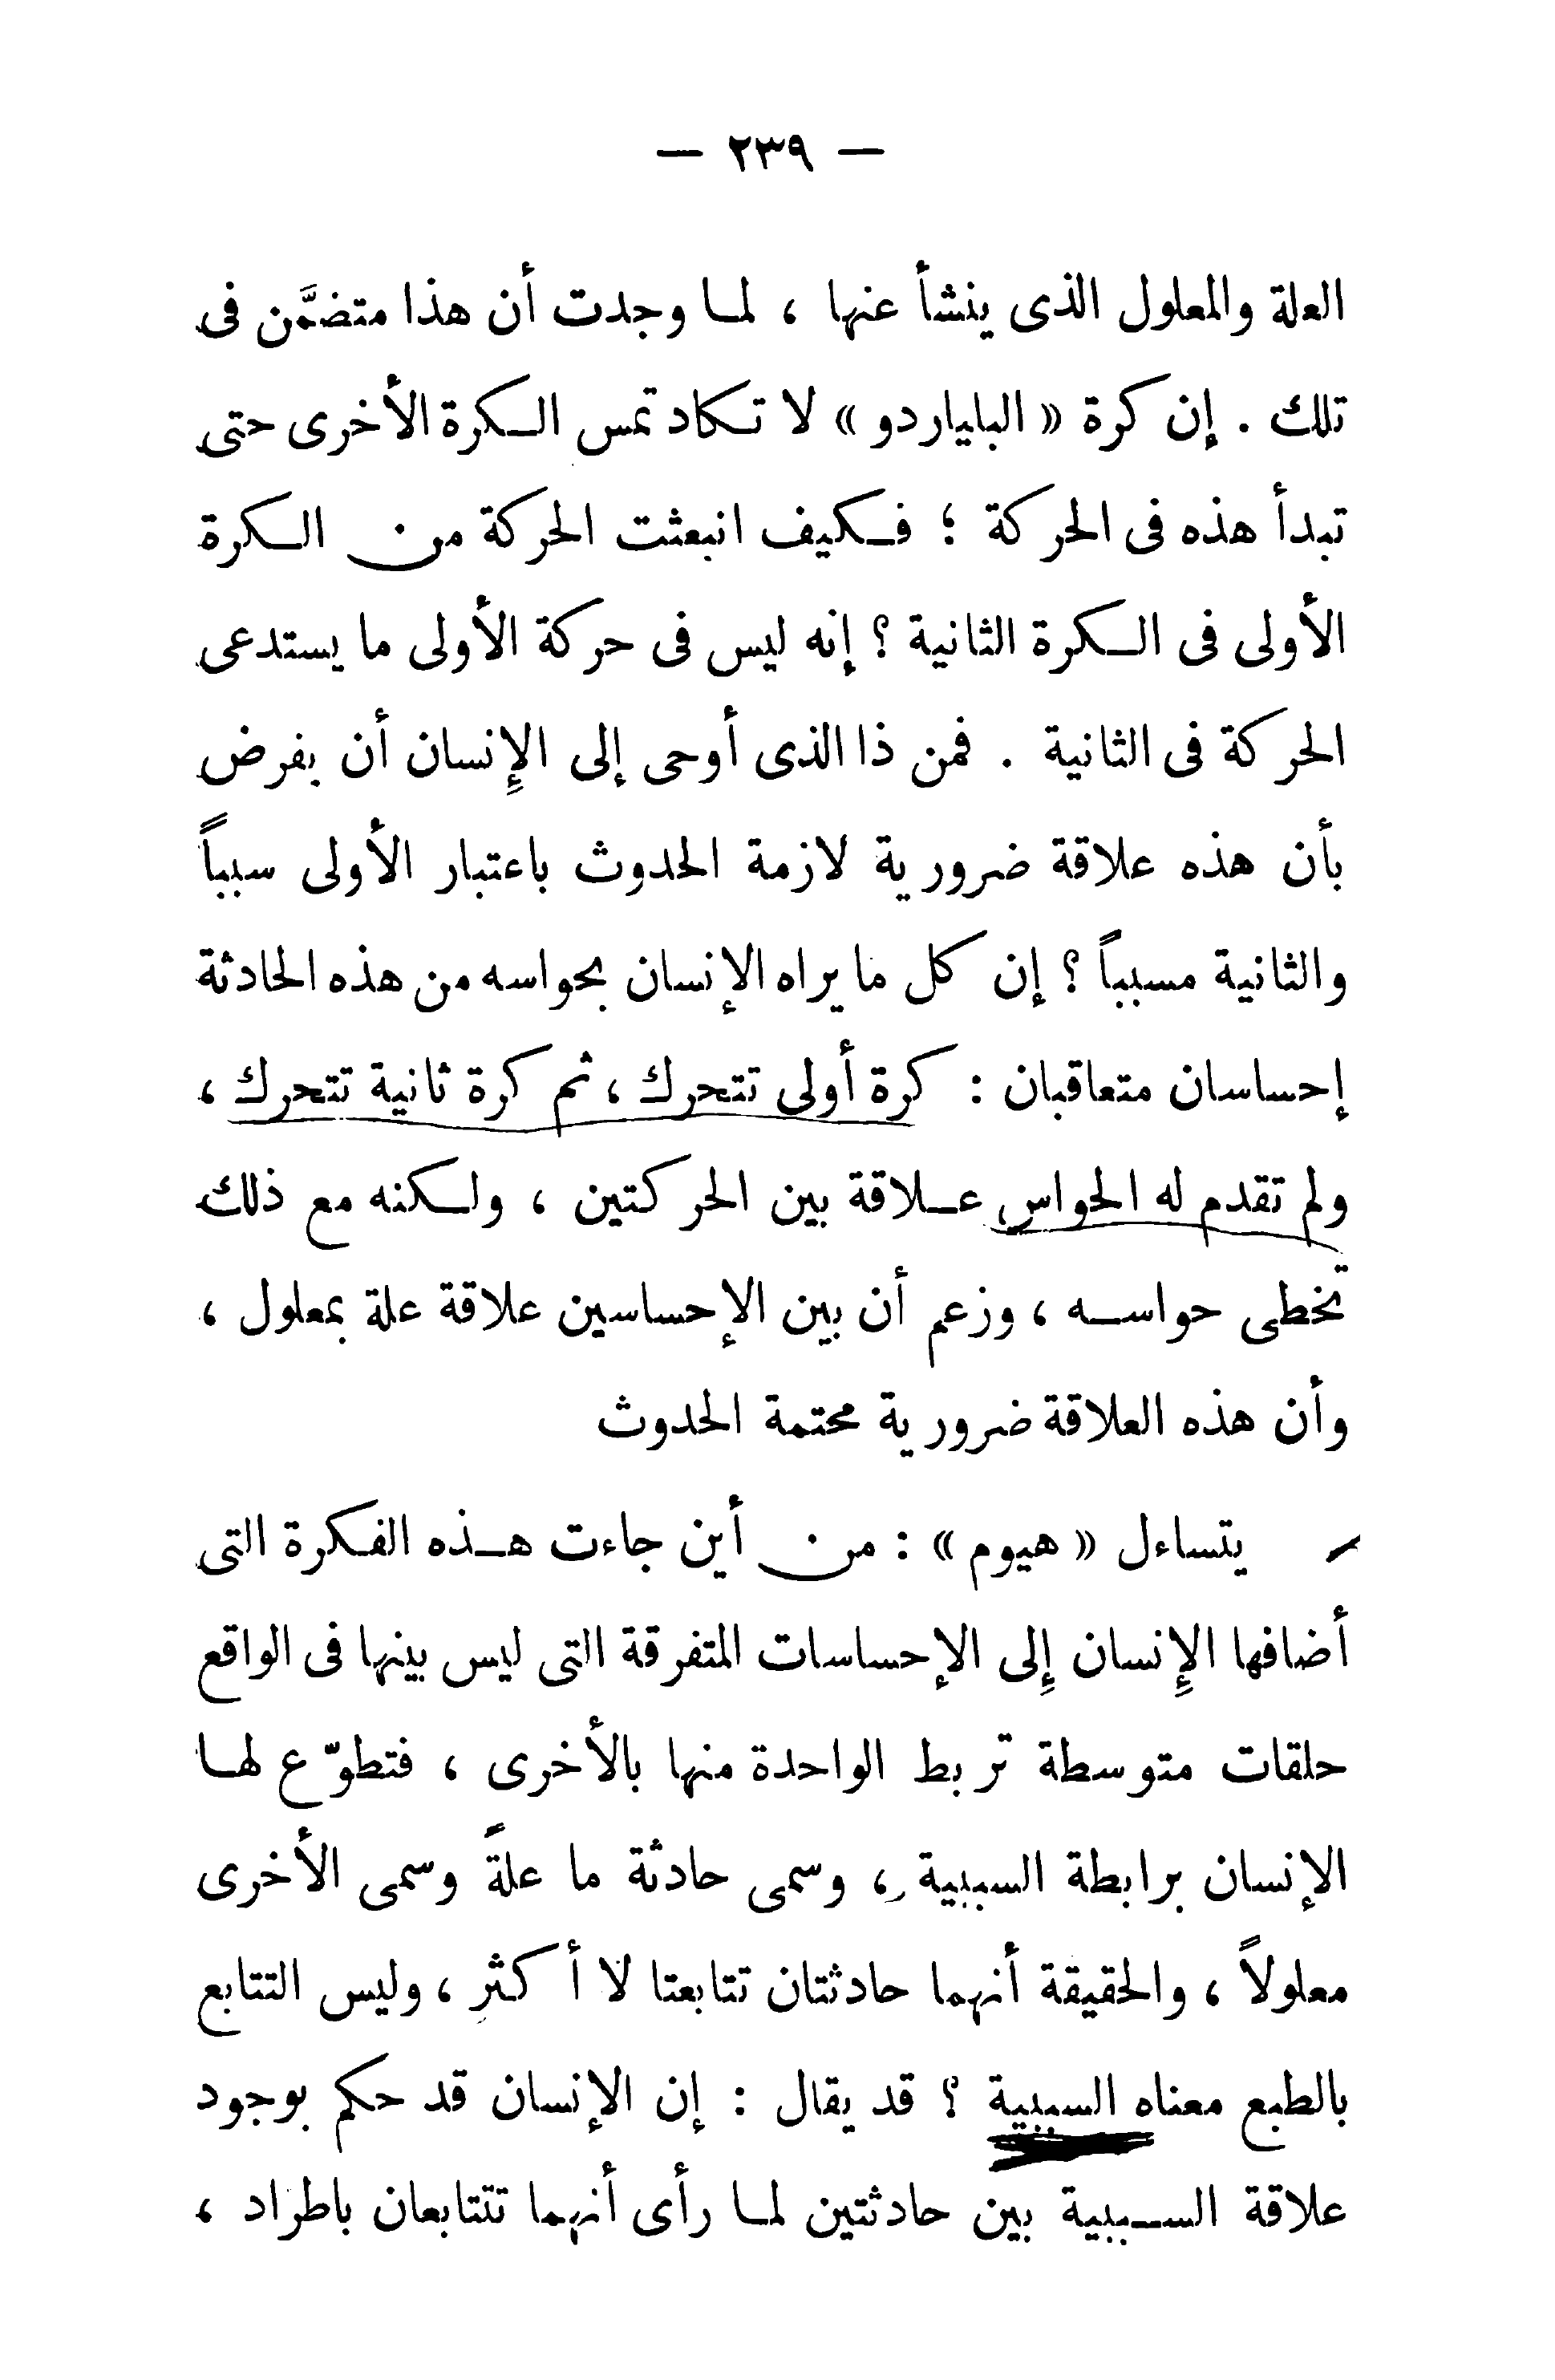 — ٢٣٩ —
العلة والمعلول الذى ينشأ عنها ، لما وجدت أن هذا متضمَّن فى
تلك . إن كرة « البلياردو » لا تكاد تمس الكرة الأخرى حتى
تبدأ هذه فى الحركة ؛ فكيف انبعثت الحركة من الكرة
الأولى فى الكرة الثانية ؟ إنه ليس فى حركة الأولى ما يستدعى
الحركة فى الثانية . فمن ذا الذى أوحى إلى الإنسان أن يفرض
بأن هذه علاقة ضرورية لازمة الحدوث باعتبار الأولى سبباً
والثانية مسبباً ؟ إن كل ما يراه الإنسان بحواسه من هذه الحادثة
إحساسان متعاقبان : كرة أولى تتحرك ، ثم كرة ثانية تتحرك ،
ولم تقدم له الحواس علاقة بين الحركتين ، ولكنه مع ذلك
تخطى حواسه ، وزعم أن بين الإحساسين علاقة علة بمعلول ،
وأن هذه العلاقة ضرورية محتمة الحدوث
يتساءل « هيوم » : من أين جاءت هذه الفكرة التى
أضافها الإِنسان إِلى الإحساسات المتفرقة التى ليس بينها فى الواقع
حلقات متوسطة تربط الواحدة منها بالأخرى ، فتطوّع لها
الإنسان برابطة السببية ، وسمى حادثة ما علةً وسمى الأخرى
معلولاً ، والحقيقة أنهما حادثتان تتابعتا لا أكثر ، وليس التتابع
بالطبع معناه السببية ؟ قد يقال : إن الإنسان قد حكم بوجود
علاقة السببية بين حادثتين لما رأى أنهما تتتابعان باطراد ،